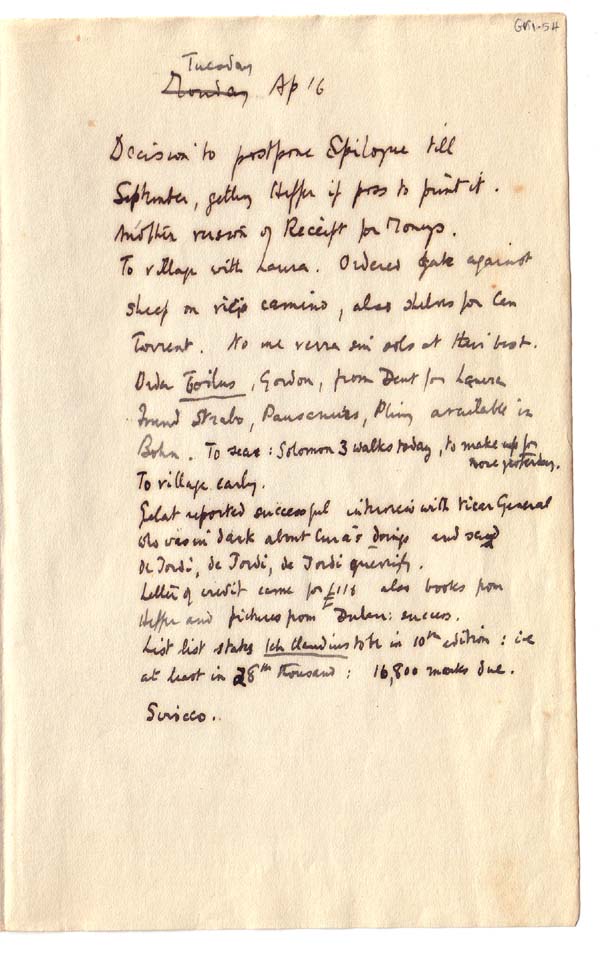 GR1-54
Tuesday
Monday Ap 16
Decision to postpone Epilogue till
September, getting Heffer if poss to print it.
Another version of Receipt for Moneys.
To village with Laura. Ordered gate against
sheep on viejo camino, also shelves for Can
Torrent. No me verra sin sols at their best.
Order Troilus, Gordon, from Dent for Laura
Found Strabo, Pausanias, Pliny available in
Bohn. To sea: Solomon 3 walks today, to make up for
none yesterday.
To village early.
Gelat reported successful interview with Vicar General
who was in dark about Cura's doings and said
de Jordi, de Jordi, de Jordi
Letter of credit came for £116 also books from
Heffer and pictures from Dulau: success.
List list states Ich Claudius to be in 10th edition: i.e
at least in 28th thousand: 16,800 marks due.
Sirocco.